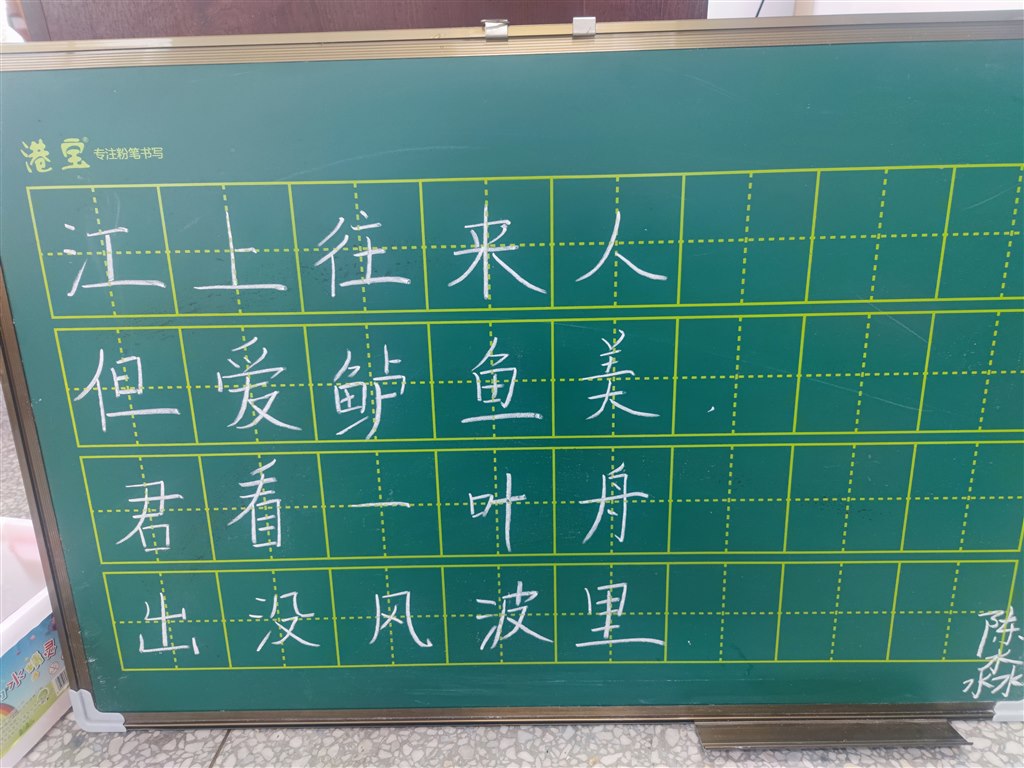 港宝® 专注粉笔书写
江上往来人
但爱鲈鱼美
君看一叶舟
出没风波里
陈淼